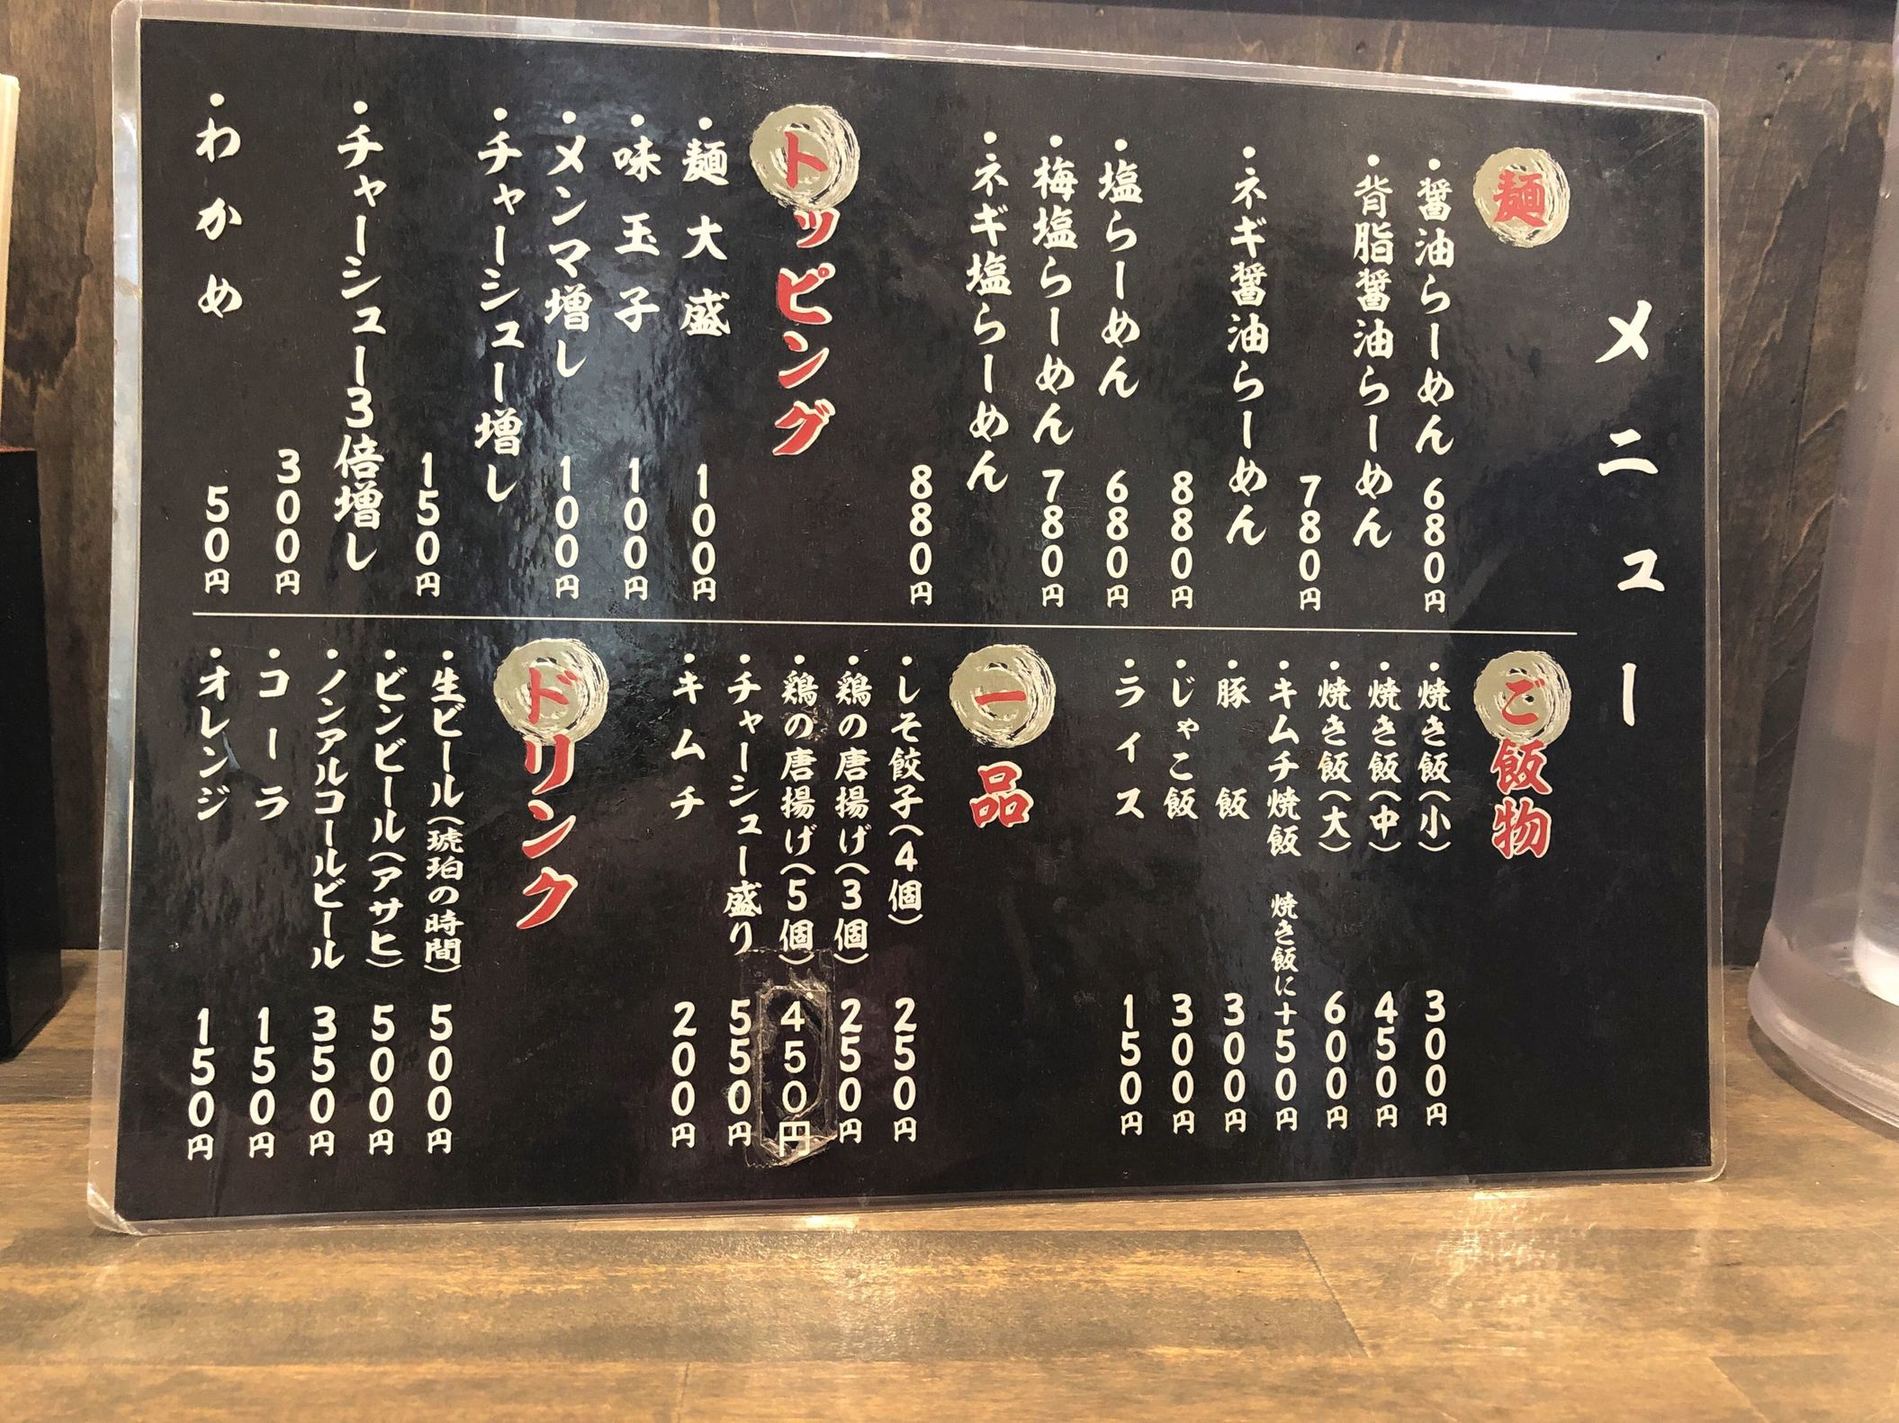 メニュー
麺
・醤油らーめん 680円
・背脂醤油らーめん
780円
・ネギ醤油らーめん
880円
・塩らーめん 680円
・梅塩らーめん 780円
・ネギ塩らーめん
880円
トッピング
・麺大盛 100円
・味玉子 100円
・メンマ増し 100円
・チャーシュー増し
150円
・チャーシュー3倍増し
300円
・わかめ 50円
ご飯物
・焼き飯(小) 300円
・焼き飯(中) 450円
・焼き飯(大) 600円
・キムチ焼飯 焼き飯に+50円
・豚飯 300円
・じゃこ飯 300円
・ライス 150円
一品
・しそ餃子(4個) 250円
・鶏の唐揚げ(3個) 250円
・鶏の唐揚げ(5個) 450円
・チャーシュー盛り 550円
・キムチ 200円
ドリンク
・生ビール(琥珀の時間) 500円
・ビンビール(アサヒ) 500円
・ノンアルコールビール 350円
・コーラ 150円
・オレンジ 150円